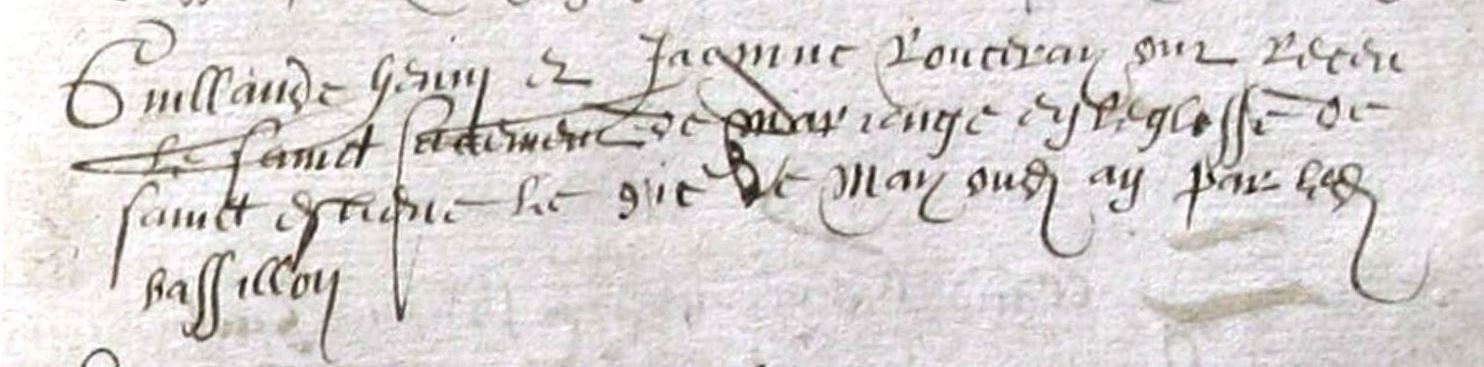 Guillaude henry et Jacquine Ronceray ont receu
le sainct sacrement de mariaige en leglesse de
sainct estiene le de may oud an par led
vassillon